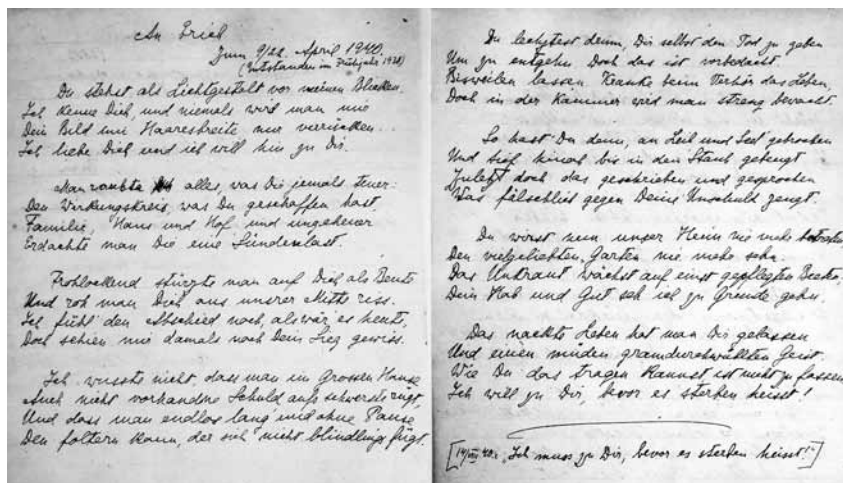 An Erich
Zum 9/22. April 1940.
(Entstanden im Frühjahr 1938)
Du stehst als Lichtgestalt vor meinen Blicken.
Ich kenne Dich, und niemals wird man mir
Dein Bild um Haaresbreite nur verrücken..
Ich liebe Dich und ich will hin zu Dir.
Man raubte alles, was Dir jemals teuer:
Den Wirkungskreis, was Du geschaffen hast.
Familie, Haus und Hof und ungeheuer
Erdachte man Dir eine Sündenlast.
Frohlockend stürzte man auf Dich als Beute
Und roh man Dich aus unsrer Mitte riss.
Ich fühl' den Abschied noch, als wär' es heute,
Doch schien mir damals noch Dein Sieg gewiss.
Ich wusste nicht, dass man im Grossen Hause
Auch nicht vorhandne Schuld aufs schwerste rügt,
Und dass man endlos lang und ohne Pause
Den foltern kann, der sich nicht blindlings fügt.
Du lechztest drum, Dir selbst den Tod zu geben
Um zu entgehn. Doch das ist vorbedacht.
Bisweilen lassen Kranke beim Verhör das Leben,
Doch in der Kammer wird man streng bewacht.
So hast Du denn, an Leib und Seel' gebrochen
Und tief hinab bis in den Staub gebeugt
Zuletzt doch das geschrieben und gesprochen
Was fälschlich gegen Deine Unschuld zeugt.
Du wirst nun unser Heim nie mehr betreten
Den vielgeliebten Garten nie mehr sehn.
Das Unkraut wächst auf einst gepflegten Beeten,
Dein Hab und Gut seh ich zu Grunde gehn.
Das nackte Leben hat man Dir gelassen
Und einen müden gramdurchwühlten Geist.
Wie Du das tragen kannst ist nicht zu fassen
Ich will zu Dir, bevor es sterben heisst!
[14/VII 40.: "Ich muss zu Dir, bevor es sterben heisst!"]